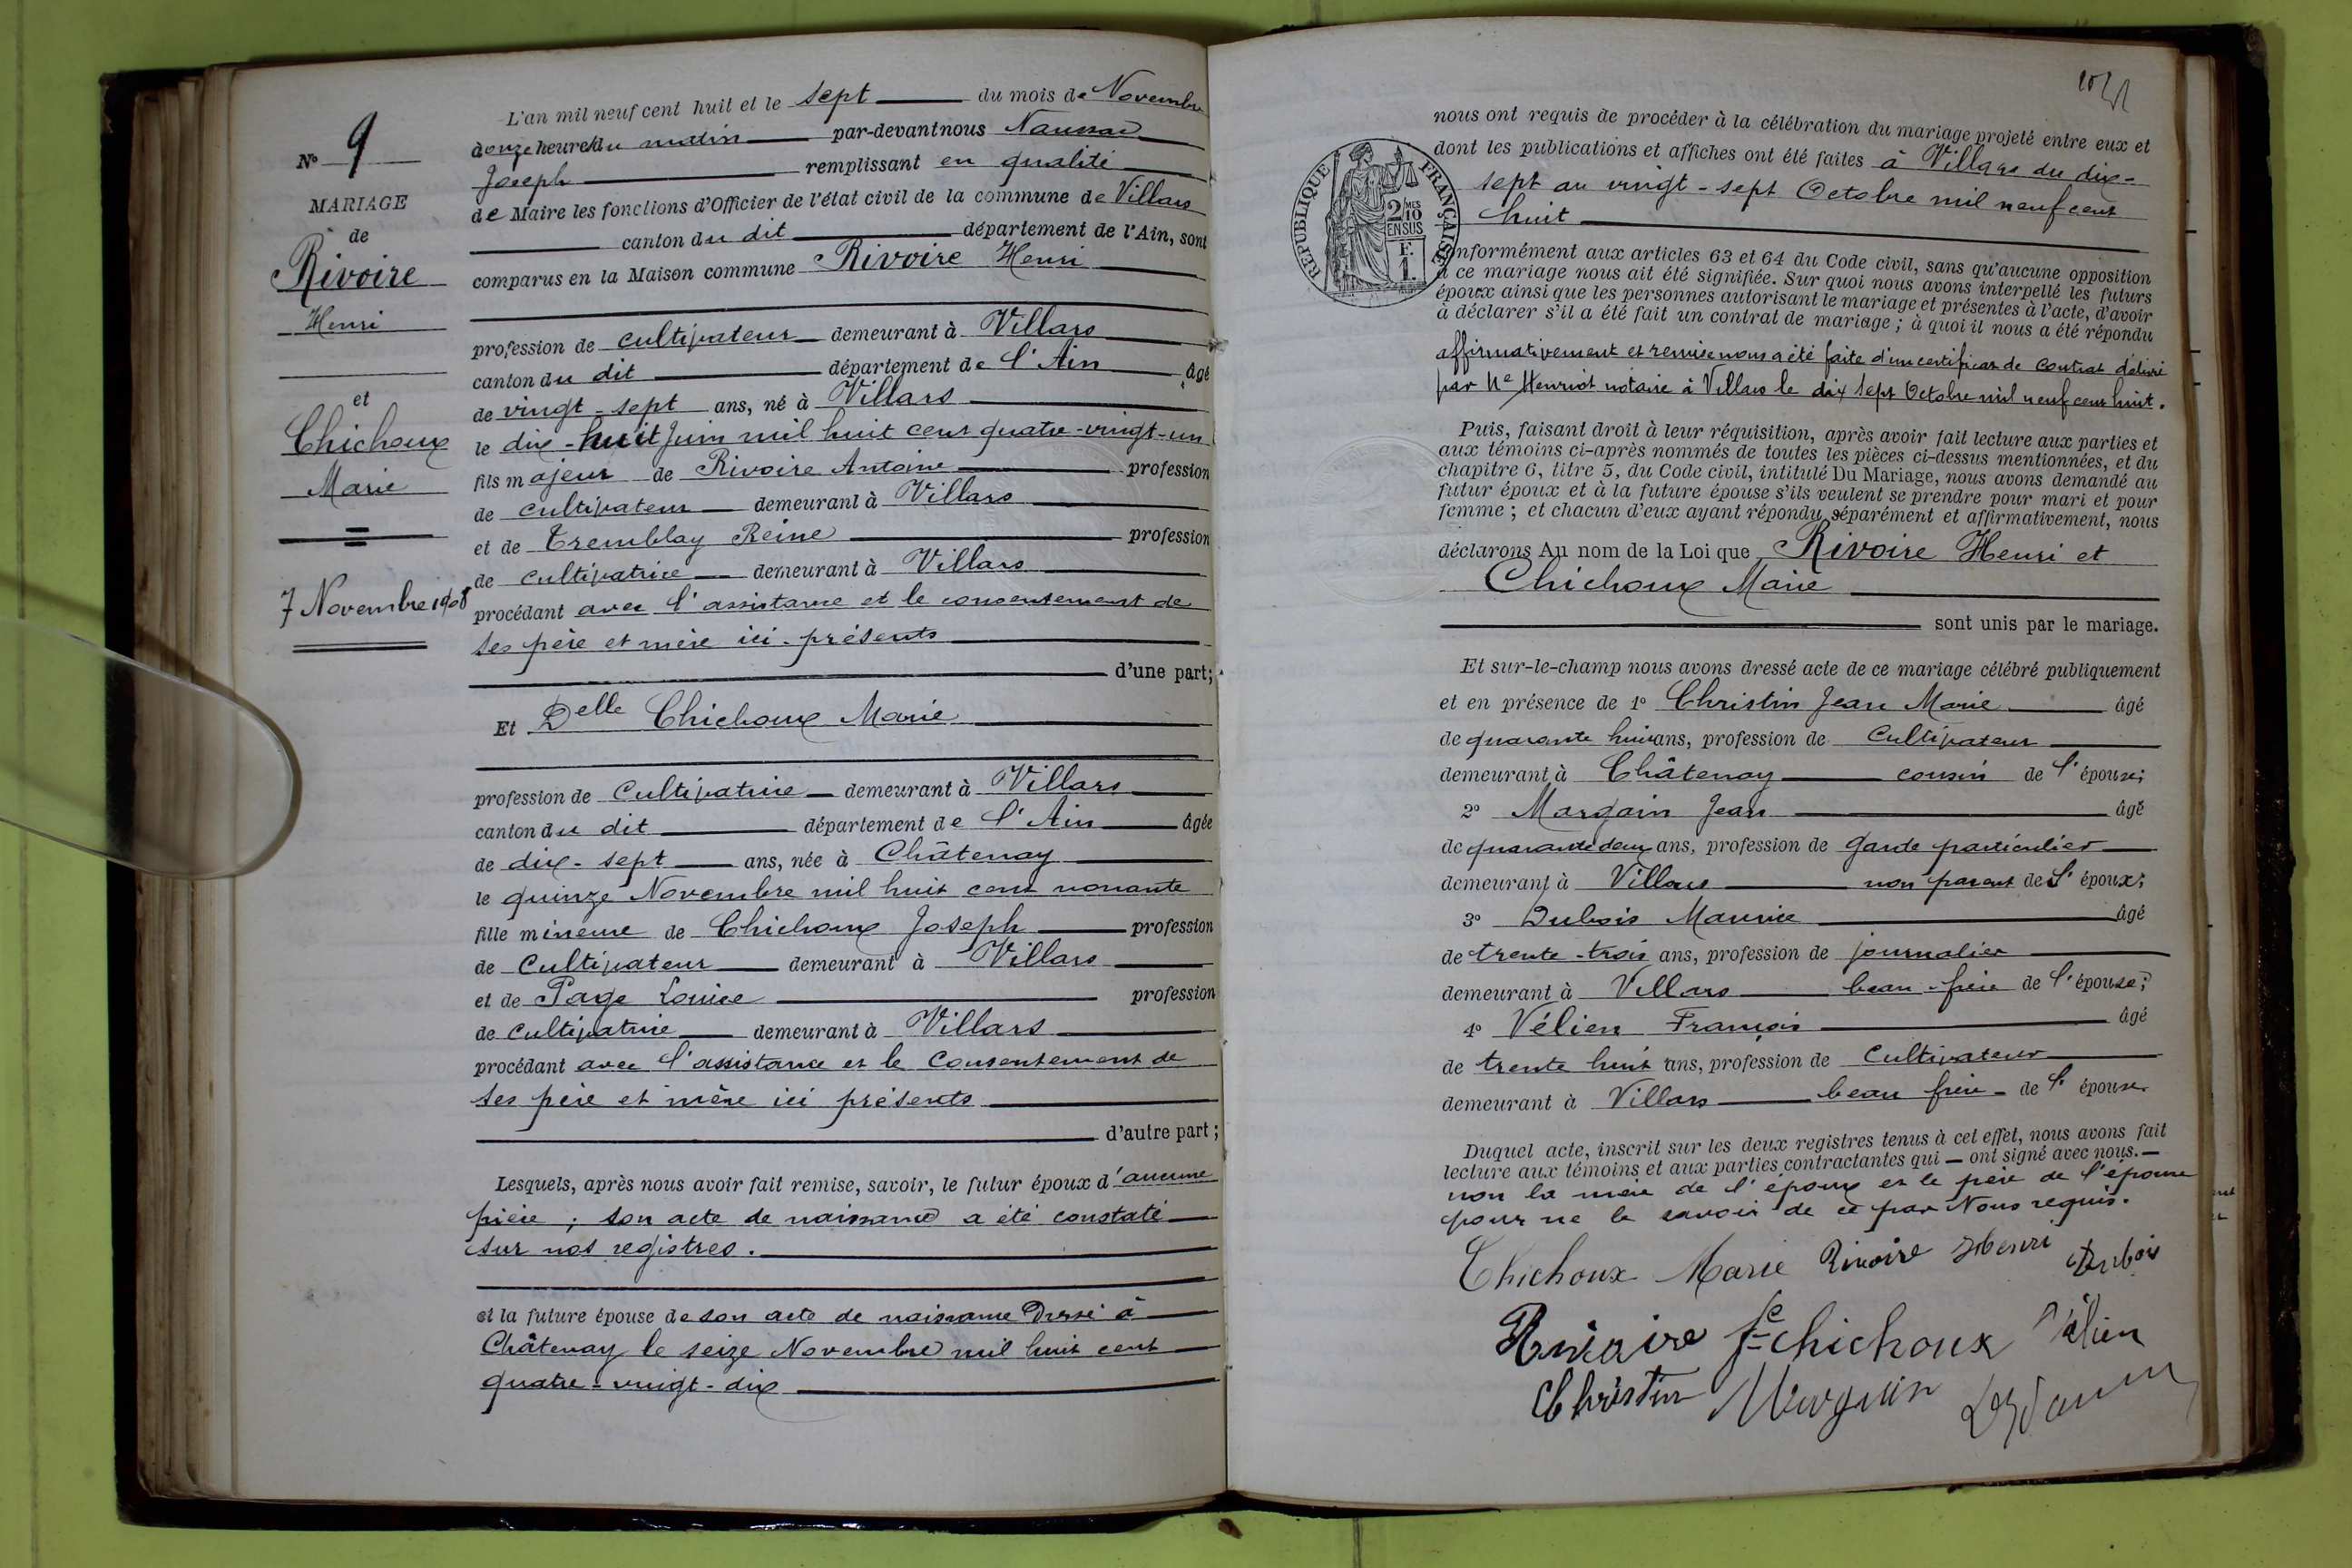 N° 9
MARIAGE
de
Rivoire
Henri
et
Chichoux
Marie
7 Novembre 1908
L'an mil neuf cent huit et le sept du mois de Novembre
à onze heures du matin par-devant nous
Joseph remplissant en qualité
de Maire les fonctions d'Officier de l'état civil de la commune de Villars
canton du dit département de l'Ain, sont
comparus en la Maison commune Rivoire Henri
profession de cultivateur demeurant à Villars
canton du dit département de l'Ain âgé
de vingt-sept ans, né à Villars
le dix-huit Juin mil huit cent quatre-vingt-un
fils majeur de Rivoire Antoine profession
de cultivateur demeurant à Villars
et de Tremblay Reine profession
de cultivatrice demeurant à Villars
procédant avec l'assistance et le consentement de
ses père et mère ici-présents
d'une part;
Et Delle Chichoux Marie
profession de Cultivatrice demeurant à Villars
canton du dit département de l'Ain âgée
de dix-sept ans, née à Châtenay
le quinze Novembre mil huit cent nonante
fille mineure de Chichoux Joseph profession
de Cultivateur demeurant à Villars
et de Page Louise profession
de cultivatrice demeurant à Villars
procédant avec l'assistance et le Consentement de
ses père et mère ici présents
d'autre part;
Lesquels, après nous avoir fait remise, savoir, le futur époux d'aucune
pièce ; son acte de naissance a été constaté
sur nos registres.
et la future épouse de son acte de naissance Dressé à
Châtenay le seize Novembre mil huit cent
quatre-vingt-dix
nous ont requis de procéder à la célébration du mariage projeté entre eux et
dont les publications et affiches ont été faites à Villars du dix-
sept au vingt-sept Octobre mil neuf cent
huit
conformément aux articles 63 et 64 du Code civil, sans qu'aucune opposition
à ce mariage nous ait été signifiée. Sur quoi nous avons interpellé les futurs
époux ainsi que les personnes autorisant le mariage et présentes à l'acte, d'avoir
à déclarer s'il a été fait un contrat de mariage ; à quoi il nous a été répondu
affirmativement et remise nous a été faite d'un certificat de contrat délivré
par Me Henriot notaire à Villars le dix sept Octobre mil neuf cent huit.
Puis, faisant droit à leur réquisition, après avoir fait lecture aux parties et
aux témoins ci-après nommés de toutes les pièces ci-dessus mentionnées, et du
chapitre 6, titre 5, du Code civil, intitulé Du Mariage, nous avons demandé au
futur époux et à la future épouse s'ils veulent se prendre pour mari et pour
femme ; et chacun d'eux ayant répondu séparément et affirmativement, nous
déclarons Au nom de la Loi que Rivoire Henri et
Chichoux Marie
sont unis par le mariage.
Et sur-le-champ nous avons dressé acte de ce mariage célébré publiquement
et en présence de 1° Christin Jean Marie âgé
de quarante huit ans, profession de Cultivateur
demeurant à Châtenay cousin de l'épouse;
2° Margain Jean âgé
de quarante deux ans, profession de garde particulier
demeurant à Villars non parent de l'époux;
3° Dubois Maurice âgé
de trente-trois ans, profession de journalier
demeurant à Villars beau-frère de l'épouse;
4° Vélien François âgé
de trente huit ans, profession de Cultivateur
demeurant à Villars beau frère de l'épouse.
Duquel acte, inscrit sur les deux registres tenus à cet effet, nous avons fait
lecture aux témoins et aux parties contractantes qui ont signé avec nous.
non la mère de l'époux et le père de l'épouse
pour ne le savoir de ce par Nous requis.
Chichoux Marie Rivoire Henri Dubois
Rivoire fe chichoux Vélien
Christin Margain
RÉPUBLIQUE FRANÇAISE
2 MES
10
EN SUS
F.
1.